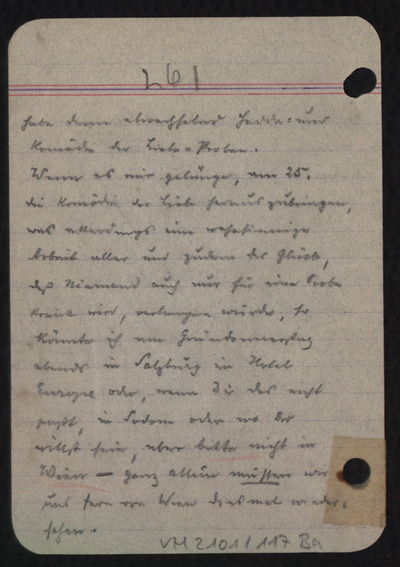 261
habe dann abwechselnd Hedda- und
Komödie der Liebe-Proben.
Wenn es mir gelänge, am 25.
die Komödie der Liebe herauszubringen,
was allerdings eine wahnsinnige
Arbeit aller und zudem das Glück,
daß Niemand auch nur für eine Probe
krank wird, verlangen würde, so
könnte ich am Gründonnerstag
abends in Salzburg im Hotel
Europe oder, wenn Dir das nicht
paßt, in Sodom oder wo Du
willst sein, aber bitte nicht in
Wien – ganz allein müssen wir
uns fern von Wien diesmal wieder-
sehen.
VM 2101/117 Ba